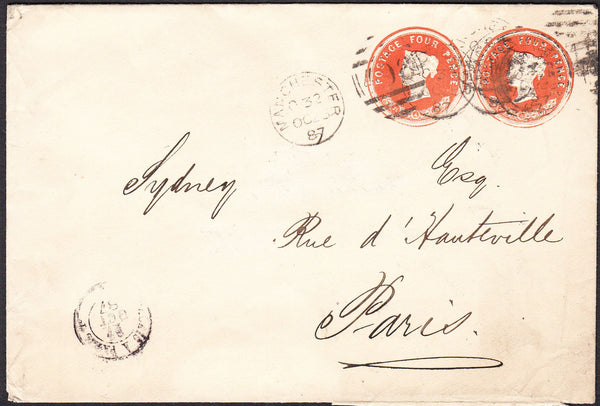 POSTAGE FOUR PENCE
POSTAGE FOUR PENCE
MANCHESTER
87
Sydney Esq.
Rue d'Hauteville
Paris.